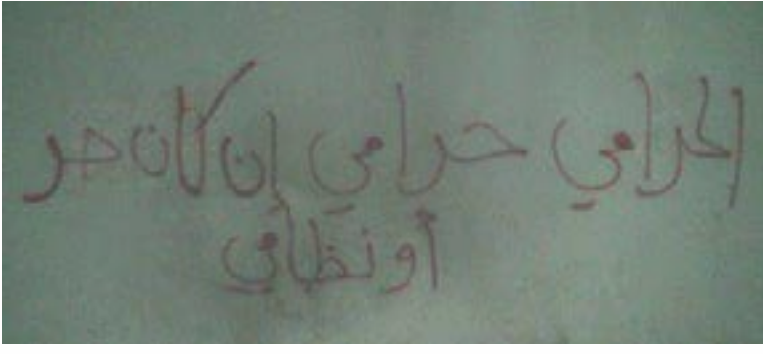 الحرامي حرامي إن كان حر
أو نظامي